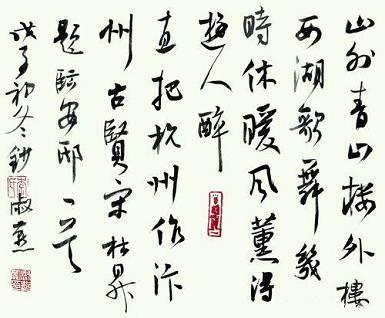 山外青山楼外樓
西湖歌舞幾
時休暖风薰得
遊人醉
直把杭州作汴
州古賢宋林昇
題臨安邸一首
戊子初冬鈔淑燕